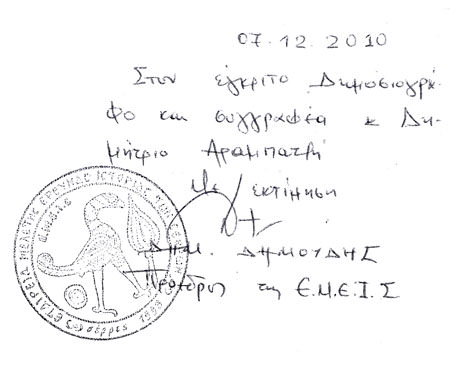 07.12.2010
Στον έγκριτο Δημοσιογρά-
φο και συγγραφέα κ Δη-
μήτριο Αραμπατζή
Με εκτίμηση
ΔΗΜ. ΔΗΜΟΥΔΗΣ
Πρόεδρος της Ε.Μ.Ε.Ι.Σ
ΕΤΑΙΡΕΙΑ ΜΕΛΕΤΗΣ ΕΡΕΥΝΑΣ ΙΣΤΟΡΙΑΣ ΤΩΝ
Σέρρες